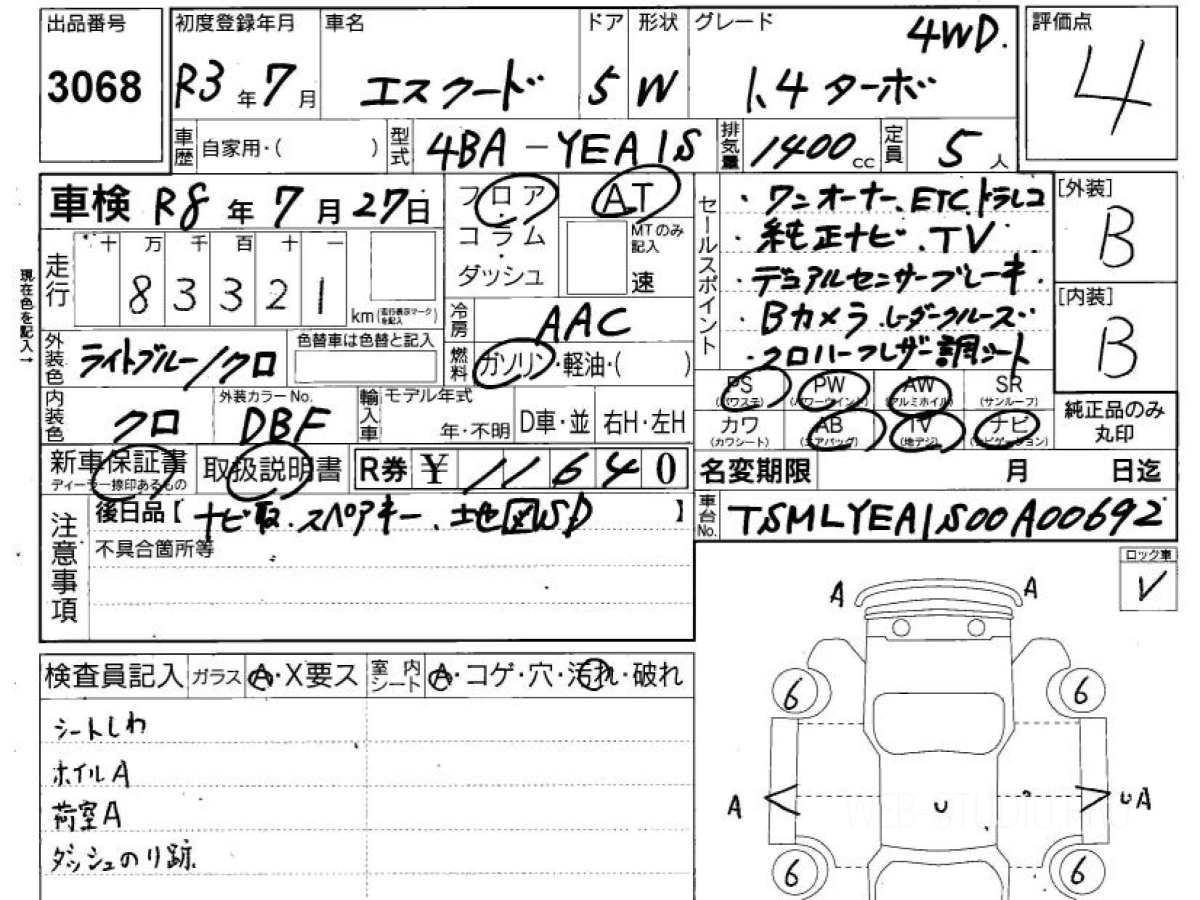 出品番号 初度登録年月 車名 ドア 形状 グレード 評価点
3068 R3年7月 エスクード 5 W 1.4ターボ 4WD. 4
車歴 自家用・( ) 型式 4BA-YEA1S 排気量 1400cc 定員 5人
車検 R8年7月27日
フロア
コラム
ダッシュ
AT
MTのみ記入
速
現在色を記入→
走行 十 万 千 百 十 一
83321 km (走行表示マークを記入)
冷房 AAC
外装色 ライトブルー/クロ
色替車は色替と記入
燃料 ガソリン・軽油・( )
内装色 クロ
外装カラーNo. DBF
輸入車 モデル年式 年・不明 D車・並 右H・左H
新車保証書
ディーラー捺印あるもの
取扱説明書
R券 ¥ 11640
セールスポイント
・ワンオーナー、ETC、ドラレコ
・純正ナビ、TV
・デュアルセンサーブレーキ・
・Bカメラ、レーダークルーズ・
・クロハーフレザー調シート
[外装]
B
[内装]
B
PS (パワステ) PW (パワーウインド) AW (アルミホイル) SR (サンルーフ)
カワ (カワシート) AB (エアバッグ) TV (地デジ) ナビ (ナビゲーション)
純正品のみ
丸印
名変期限 月 日迄
車台No. TSMLYEA1S00A00692
注意事項
後日品【ナビ取、スペアキー、地図SD】
不具合箇所等
ロック車
V
検査員記入 ガラス A・X要ス 室内シート A・コゲ・穴・汚れ・破れ
シートしわ
ホイルA
荷室A
ダッシュのり跡
A A
6 6
A U UA
6 6
WEB-STUDIO PRO